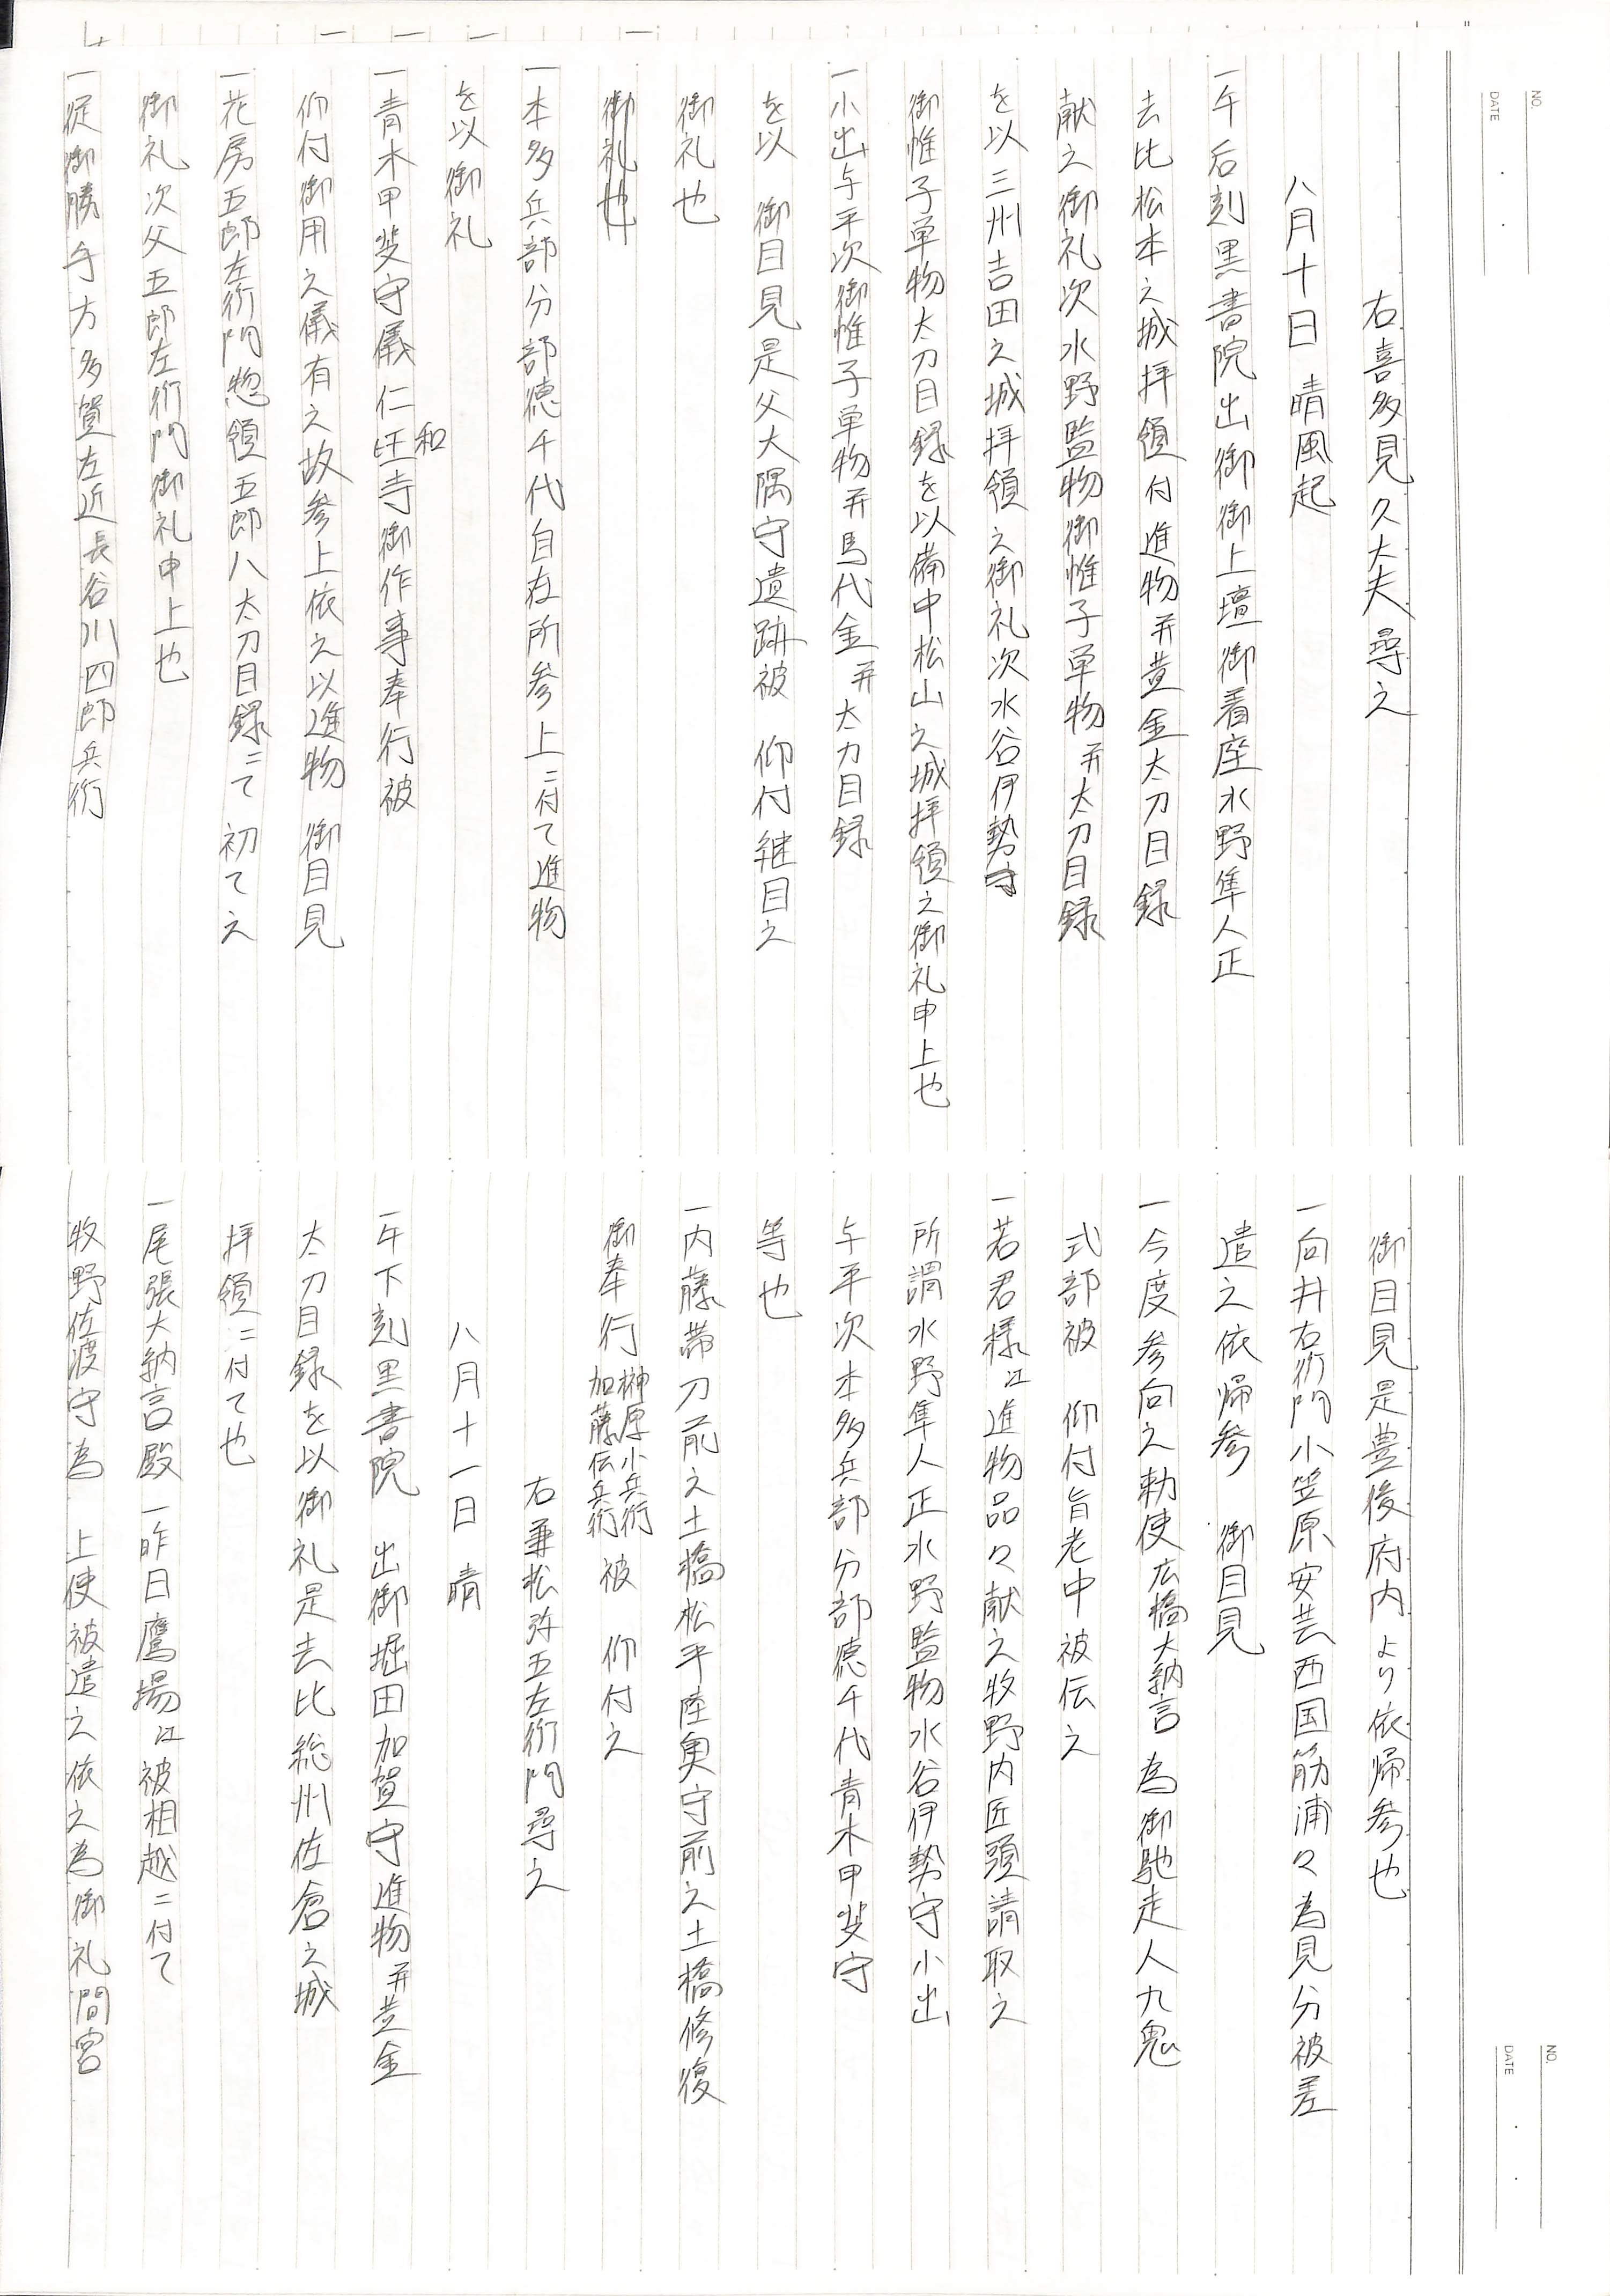 NO.
DATE
右喜多見久大夫尋之
八月十日 晴風起
一午后刻黒書院出御御上壇御着座水野隼人正
去比松本之城拝領付進物并黄金太刀目録
献之御礼次水野監物御帷子単物并太刀目録
を以三州吉田之城拝領之御礼次水谷伊勢守
御帷子単物太刀目録を以備中松山之城拝領之御礼申上也
一小出与平次御帷子単物并馬代金并太刀目録
を以 御目見是父大隅守遺跡被 仰付継目之
御礼也
御礼也
一本多兵部分部徳千代自在所参上ニ付て進物
を以御礼
一青木甲斐守儀仁旺寺御作事奉行被
和
仰付御用之儀有之故参上依之以進物 御目見
一花房五郎左衛門惣領五郎八太刀目録ニて初て之
御礼次父五郎左衛門御礼申上也
一従御勝手方多賀左近長谷川四郎兵衛
NO.
DATE
御目見是豊後府内より依帰参也
一向井右衛門小笠原安芸西国筋浦々為見分被差
遣之依帰参 御目見
一今度参向之勅使広橋大納言為御馳走人九鬼
式部被 仰付旨老中被伝之
一若君様江進物品々献之牧野内匠頭請取之
所謂水野隼人正水野監物水谷伊勢守小出
与平次本多兵部分部徳千代青木甲斐守
等也
一内藤帯刀前之土橋松平陸奥守前之土橋修復
御奉行 榊原小兵衛 加藤伝兵衛 被 仰付之
右兼松弥五左衛門尋之
八月十一日 晴
一午下刻黒書院 出御堀田加賀守進物并黄金
太刀目録を以御礼是去比総州佐倉之城
拝領ニ付て也
一尾張大納言殿一昨日鷹場江被相越ニ付て
牧野佐渡守為 上使被遣之依之為御礼間宮